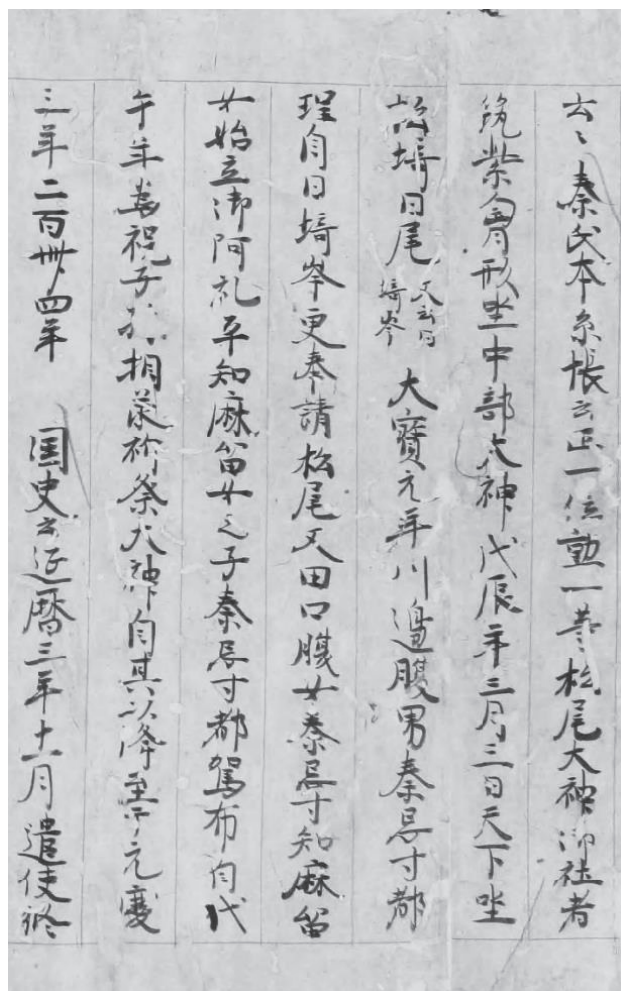 云〻秦氏本系帳云正一位勲一等松尾大神御社者
筑紫胷形坐中部大神戊辰年三月三日天下坐
松埼日尾 又云日埼岑 大寳元年川邊腹男秦忌寸都
理自日埼岑更奉請松尾又田口腹女秦忌寸知麻留
女始立御阿礼乎知麻留女之子秦忌寸都駕布自戊
午年為祝子孫相葉祈祭大神自其以降至于元慶
三年二百卅四年 国史云延暦三年十一月遣使